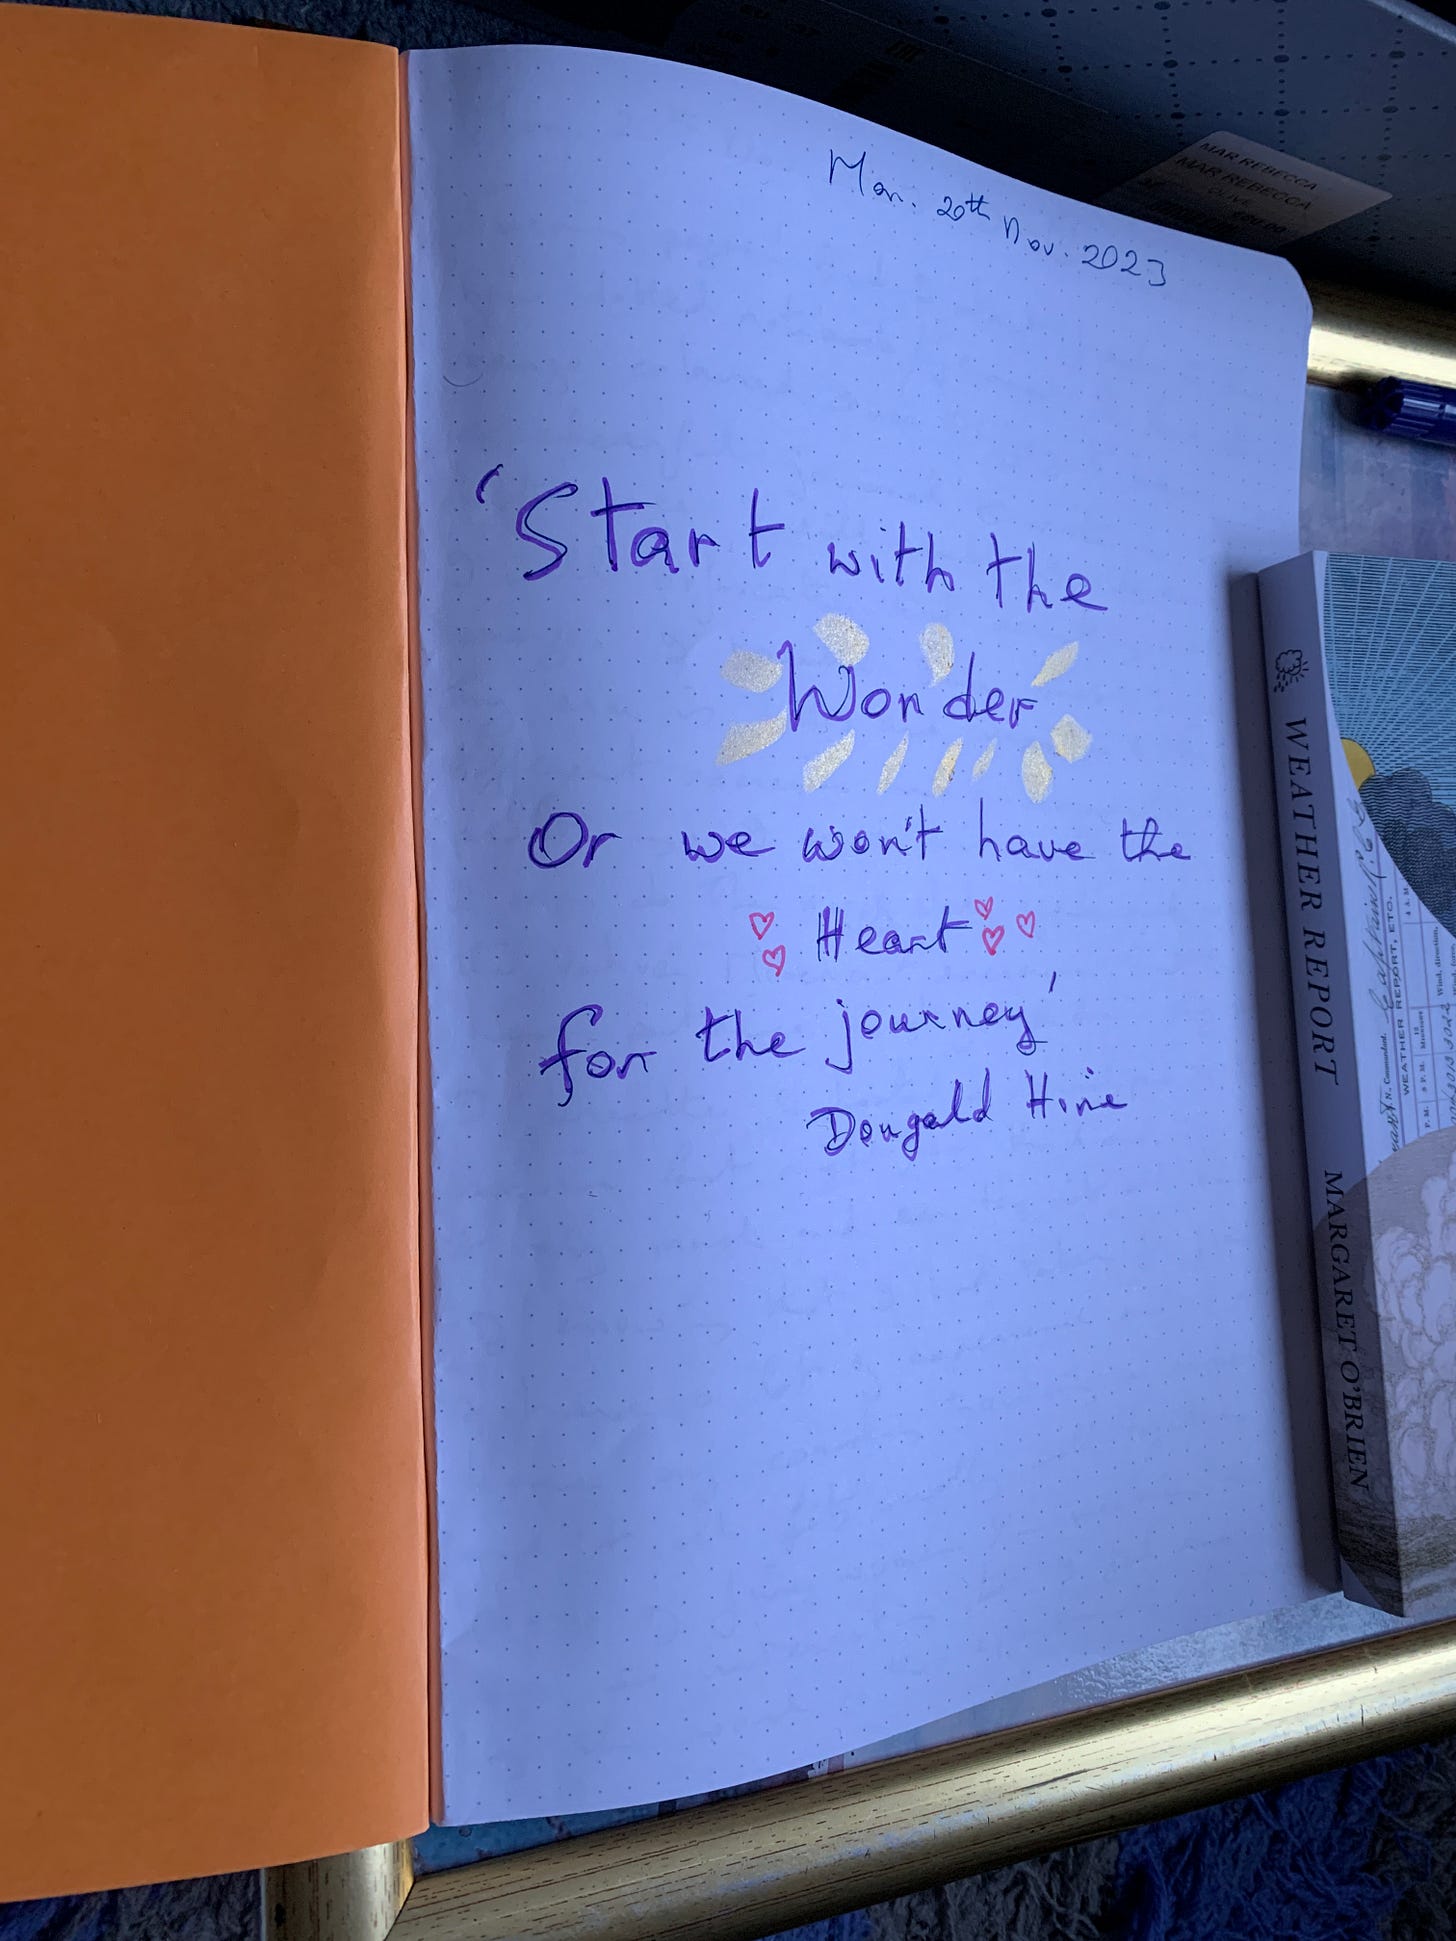 Mon. 20th Nov. 2023
'Start with the
Wonder
Or we won't have the
Heart
for the journey'
Dougald Hine
MAR REBECCA
MAR REBECCA
OLIVE
WEATHER REPORT
MARGARET O'BRIEN
WEATHER REPORT, ETC.
N. Commanded.
Wind, direction,